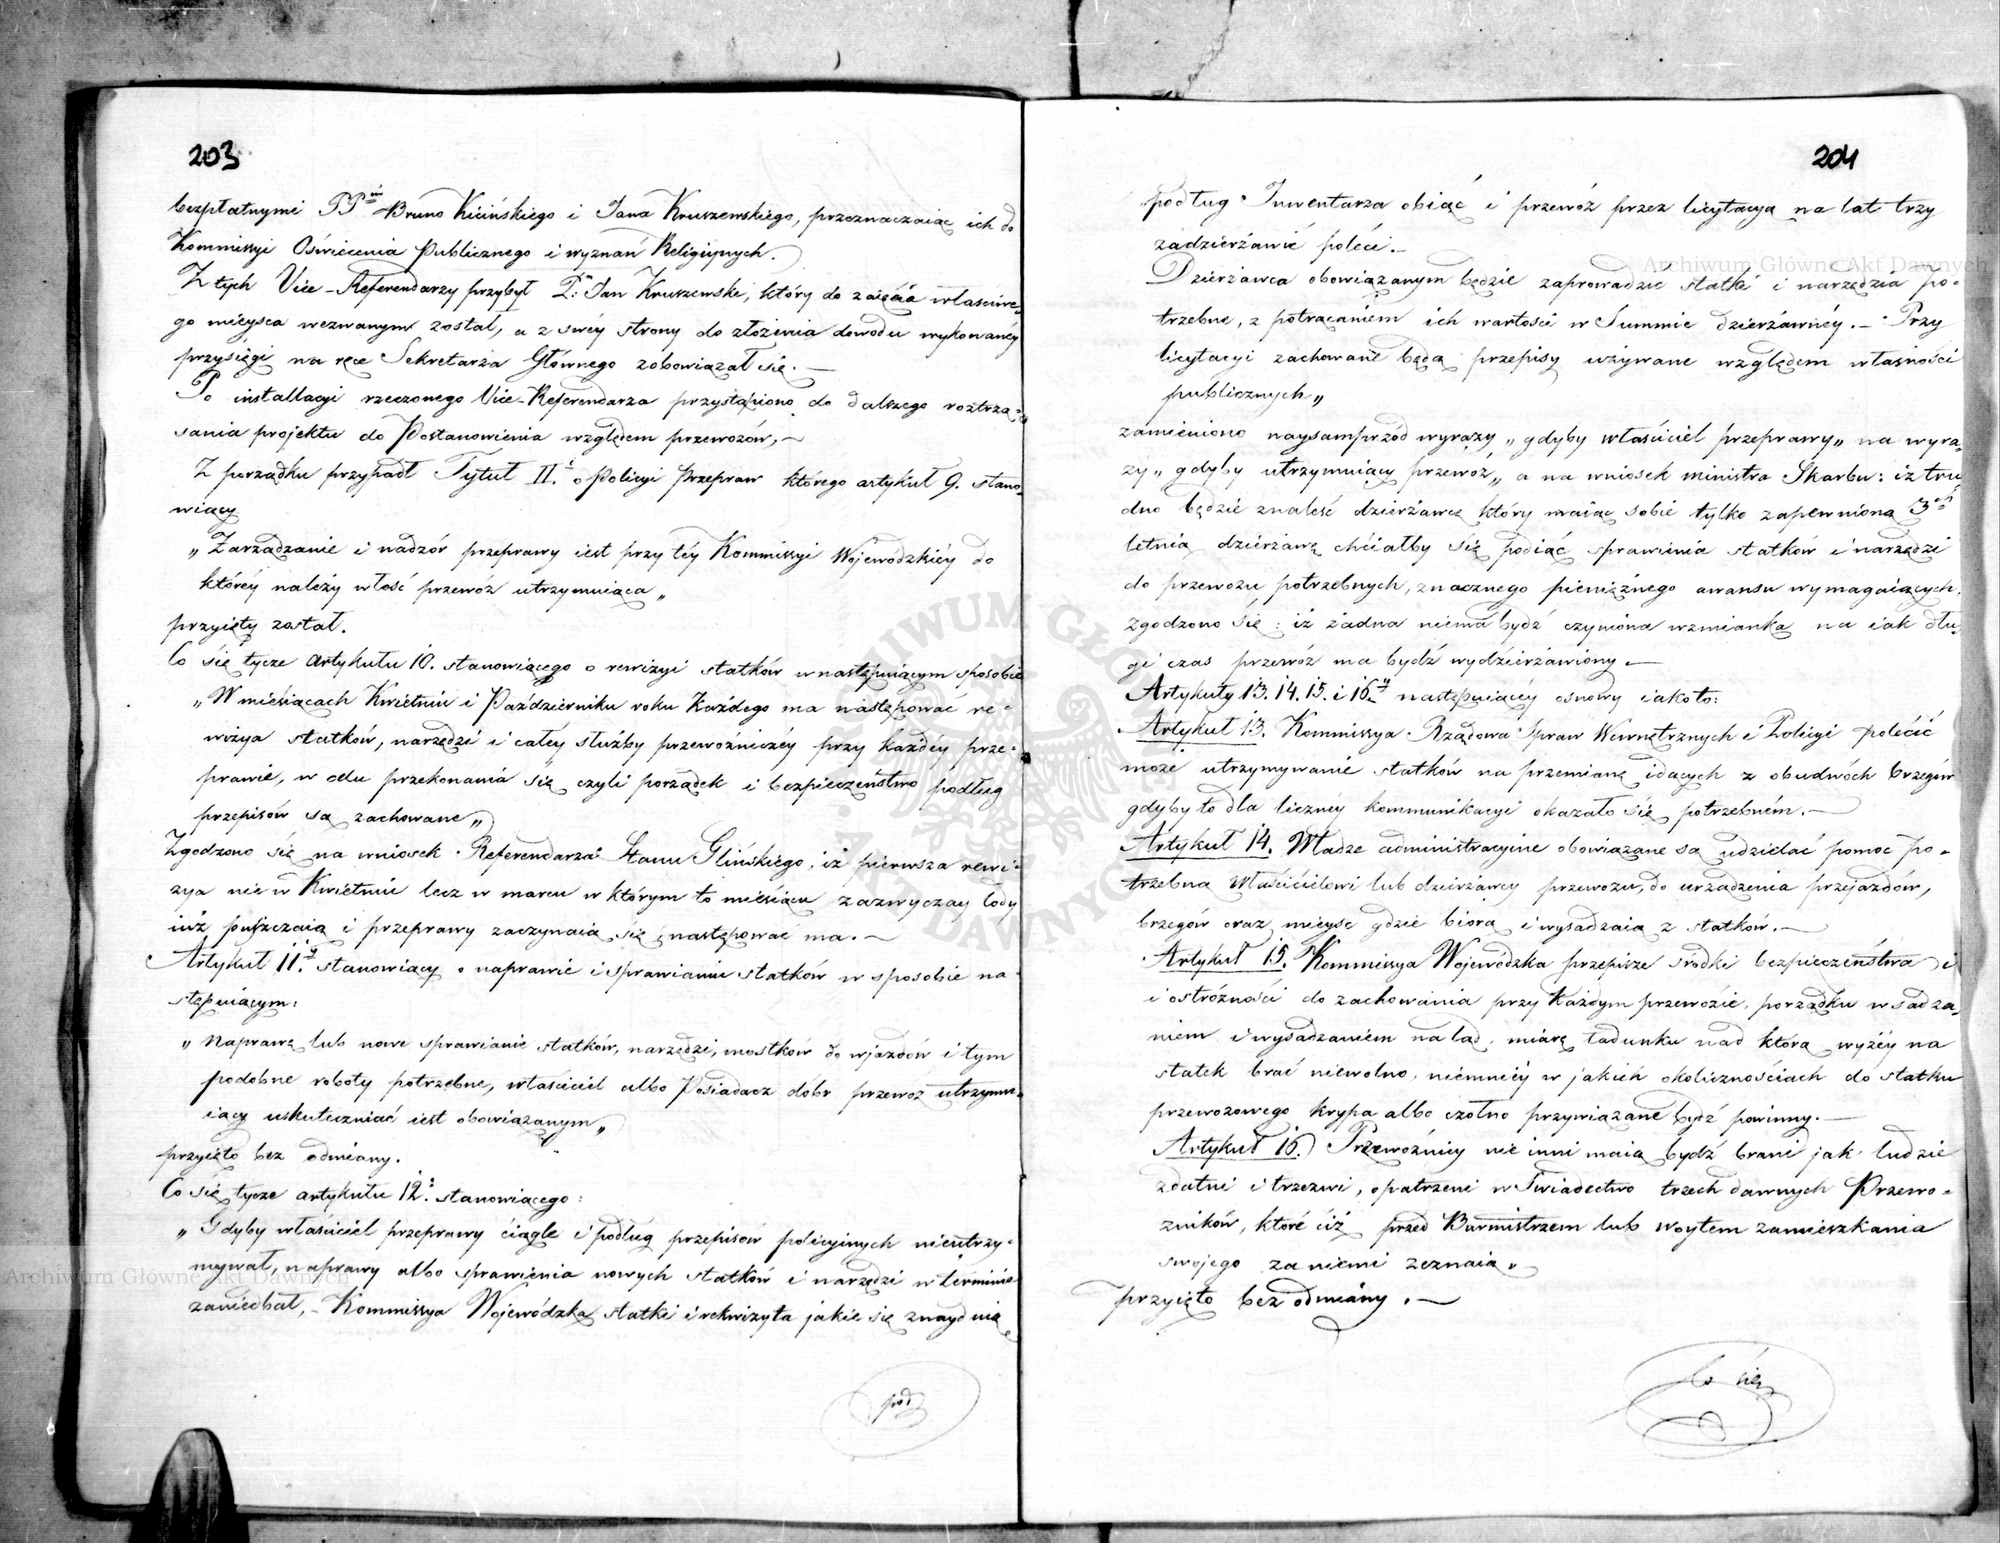 203
bezpłatnymi PP. Bruno Kicińskiego i Jana Kruszewskiego, przeznaczaiąc ich do
Kommissyi Oświecenia Publicznego i wyznań Religijnych.
Z tych Vice-Referendarzy przybył P: Jan Kruszewski, który do zaięcia właściwe-
go mieysca wezwanym został, a z swéy strony do złożenia dowodu wykonanéy
przysięgi na ręce Sekretarza Głównego zobowiązał się. —
Po installacyi rzeczonego Vice-Referendarza przystąpiono do dalszego roztrzą-
sania projektu do Postanowienia względem przewozów, —
Z porządku przypadł Tytuł II. o Policyi Przepraw którego artykuł 9. stano-
wiący
„Zarządzanie i nadzór przeprawy iest przy téy Kommissyi Wojewódzkiéy do
któréy należy włość przewóz utrzymuiąca„
przyięty został.
Co się tycze artykułu 10. stanowiącego o rewizyi statków w następuiącym sposobie
„W miesiącach Kwietniu i Październiku roku każdego ma następować re-
wizya statków, narzędzi i całey służby przewoźniczéy przy każdéy prze-
prawie, w celu przekonania się czyli porządek i bezpieczeństwo podług
przepisów są zachowane„
Zgodzono się na wniosek Referendarza Stanu Glińskiego, iż pierwsza rewi-
zya nie w Kwietniu lecz w marcu w którym to miesiącu zazwyczay lody
iuż puszczaią i przeprawy zaczynaią się następować ma. —
Artykuł 11. stanowiący o naprawie i sprawianiu statków w sposobie na
stępuiącym:
„Naprawę lub nowe sprawianie statków, narzędzi, mostków do wjazdów i tym
podobne roboty potrzebne, właściciel albo Posiadacz dóbr przewóz utrzymu-
iący uskuteczniać iest obowiązanym„
przyięto bez odmiany.
Co się tycze artykułu 12. stanowiącego:
„Gdyby właściciel przeprawy ciągle i podług przepisów policyjnych nieutrzy-
mywał, naprawy albo sprawienia nowych statków i narzędzi w terminie
zaniechał, - Kommissya Wojewódzka statki i rekwizyta jakie się znayduią
pod
204
podług Inwentarza obiąć i przewóz przez licytacyą na lat trzy
zadzierżawić poleci. —
Dzierżawca obowiązanym będzie zaprowadzić statki i narzędzia po-
trzebne, z potrącaniem ich wartości w Summie dzierżawnéy. — Przy
licytacyi zachowane będą przepisy używane względem własności
publicznych„
zamieniono naysamprzód wyrazy „gdyby właściciel przeprawy„ na wyra-
zy „gdyby utrzymuiący przewóz„ a na wniosek ministra Skarbu: iż tru-
dno będzie znaleść dzierżawcę który maiąc sobie tylko zapewnioną 3
letnią dzierżawę chciałby się podiąć sprawienia statków i narzędzi
do przewozu potrzebnych, znacznego pieniężnego awansu wymagaiących.
zgodzono się: iż żadna niema bydź czyniona wzmianka na iak dłu-
gi czas przewóz ma bydź wydzierżawiony. —
Artykuły 13. 14. 15. i 16. następuiącéy osnowy iako to:
Artykuł 13. Kommissya Rządowa Spraw Wewnętrznych i Policyi polecić
może utrzymywanie statków na przemianę idących z obudwóch brzegów
gdyby to dla licznéy kommunikacyi okazało się potrzebném. —
Artykuł 14. Władze administracyine obowiązane są udzielać pomoc po-
trzebną Właścicielowi lub dzierżawcy przewozu, do urządzenia przejazdów,
brzegów oraz mieysc gdzie biorą i wysadzaią z statków. —
Artykuł 15. Kommissya Wojewódzka przepisze srodki bezpieczeństwa i
i ostróżności do zachowania przy każdym przewozie, porządku w sadza-
niem i wysadzaniem na ląd, miarę ładunku nad którą wyżéy na
statek brać niewolno, niemniéy w jakich okolicznościach do statku
przewozowego krypa albo czołno przywiązane bydź powinny. —
Artykuł 16. Przewoźnicy nie inni maią bydź brani jak ludzie
zdatni i trzezwi, opatrzeni w Swiadectwo trzech dawnych Przewo-
zników, które ciż przed Burmistrzem lub woytem zamieszkania
swojego za niemi zeznaią„
przyięto bez odmiany. —
Co się
Archiwum Główne Akt Dawnych
Archiwum Główne Akt Dawnych
ARCHIWUM GŁÓWNE AKT DAWNYCH